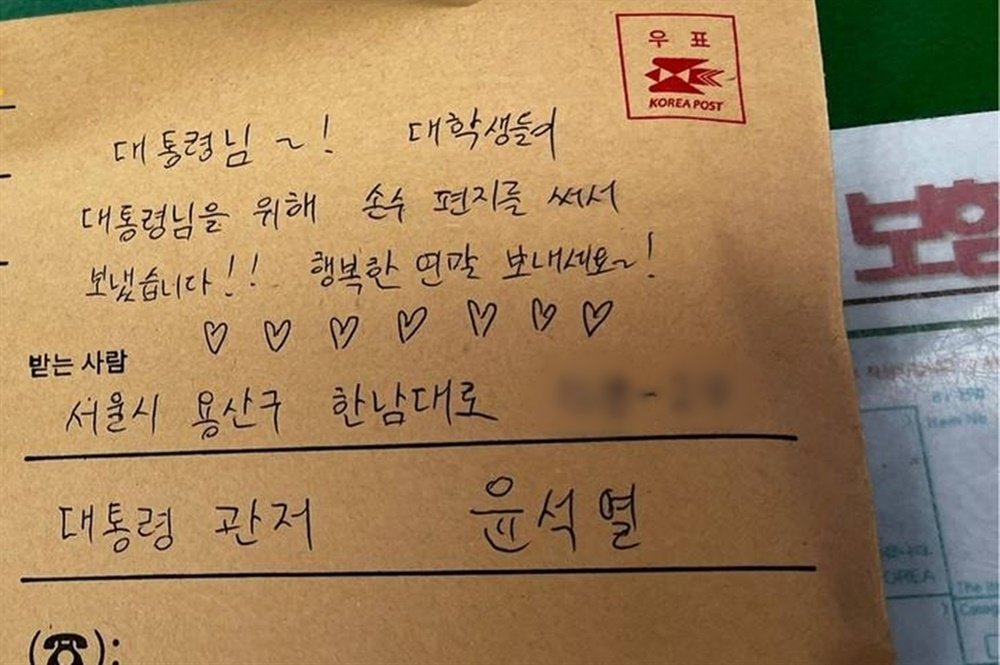 우 표
KOREA POST
대통령님~! 대학생들이
대통령님을 위해 손수 편지를 써서
보냈습니다!! 행복한 연말 보내세요~!
♡ ♡ ♡ ♡ ♡ ♡ ♡
받는 사람
서울시 용산구 한남대로
대통령 관저 윤석열
(☎):
보험
Item No
OREA